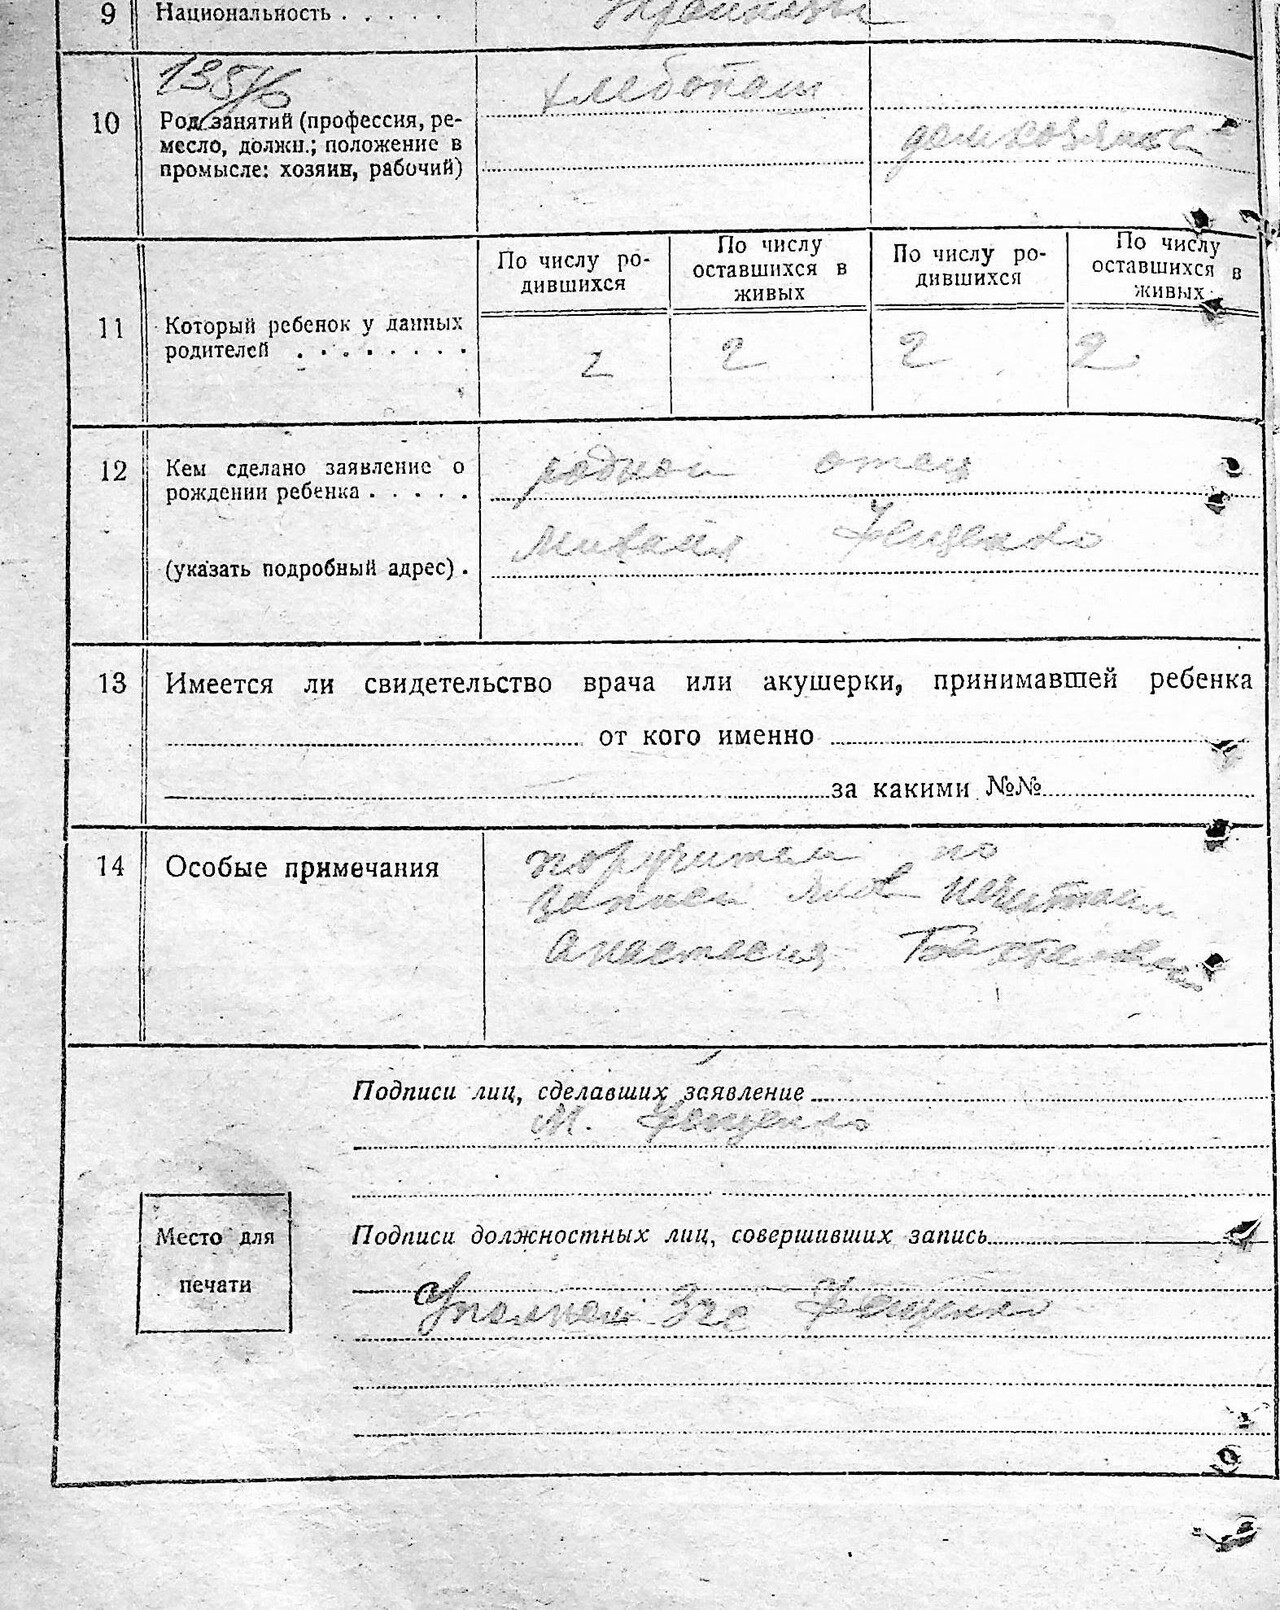 9 Национальность . . . . .
10
хлебопаш
Род занятий (профессия, ре-
месло, должн.; положение в
промысле: хозяин, рабочий)
По числу ро-
дившихся
По числу
оставшихся в
живых
По числу ро-
дившихся
По числу
оставшихся в
живых
11 Который ребенок у данных
родителей . . . . . . . .
2 2 2 2
12 Кем сделано заявление о
рождении ребенка . . . . .
родной отец
Михаил Фещенко
(указать подробный адрес) .
13 Имеется ли свидетельство врача или акушерки, принимавшей ребенка
от кого именно
за какими №№
14 Особые примечания
поручители по
записи
Анастасия
Подписи лиц, сделавших заявление
М. Фещенко
Подписи должностных лиц, совершивших запись
Место для
печати
Фещенко